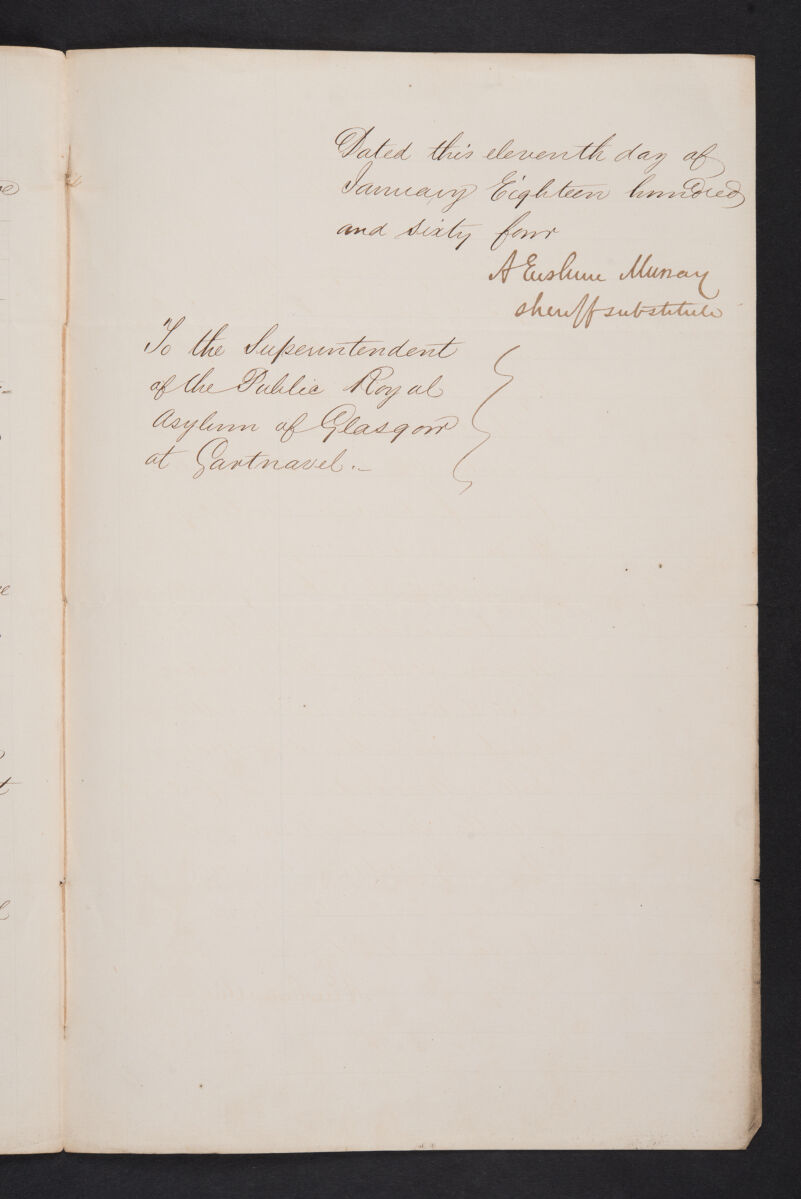 Dated this eleventh day of
January Eighteen hundred
and sixty four
A Erskine Murray
sheriff substitute
To the Superintendent
of the Public Royal
Asylum of Glasgow
at Gartnavel.-